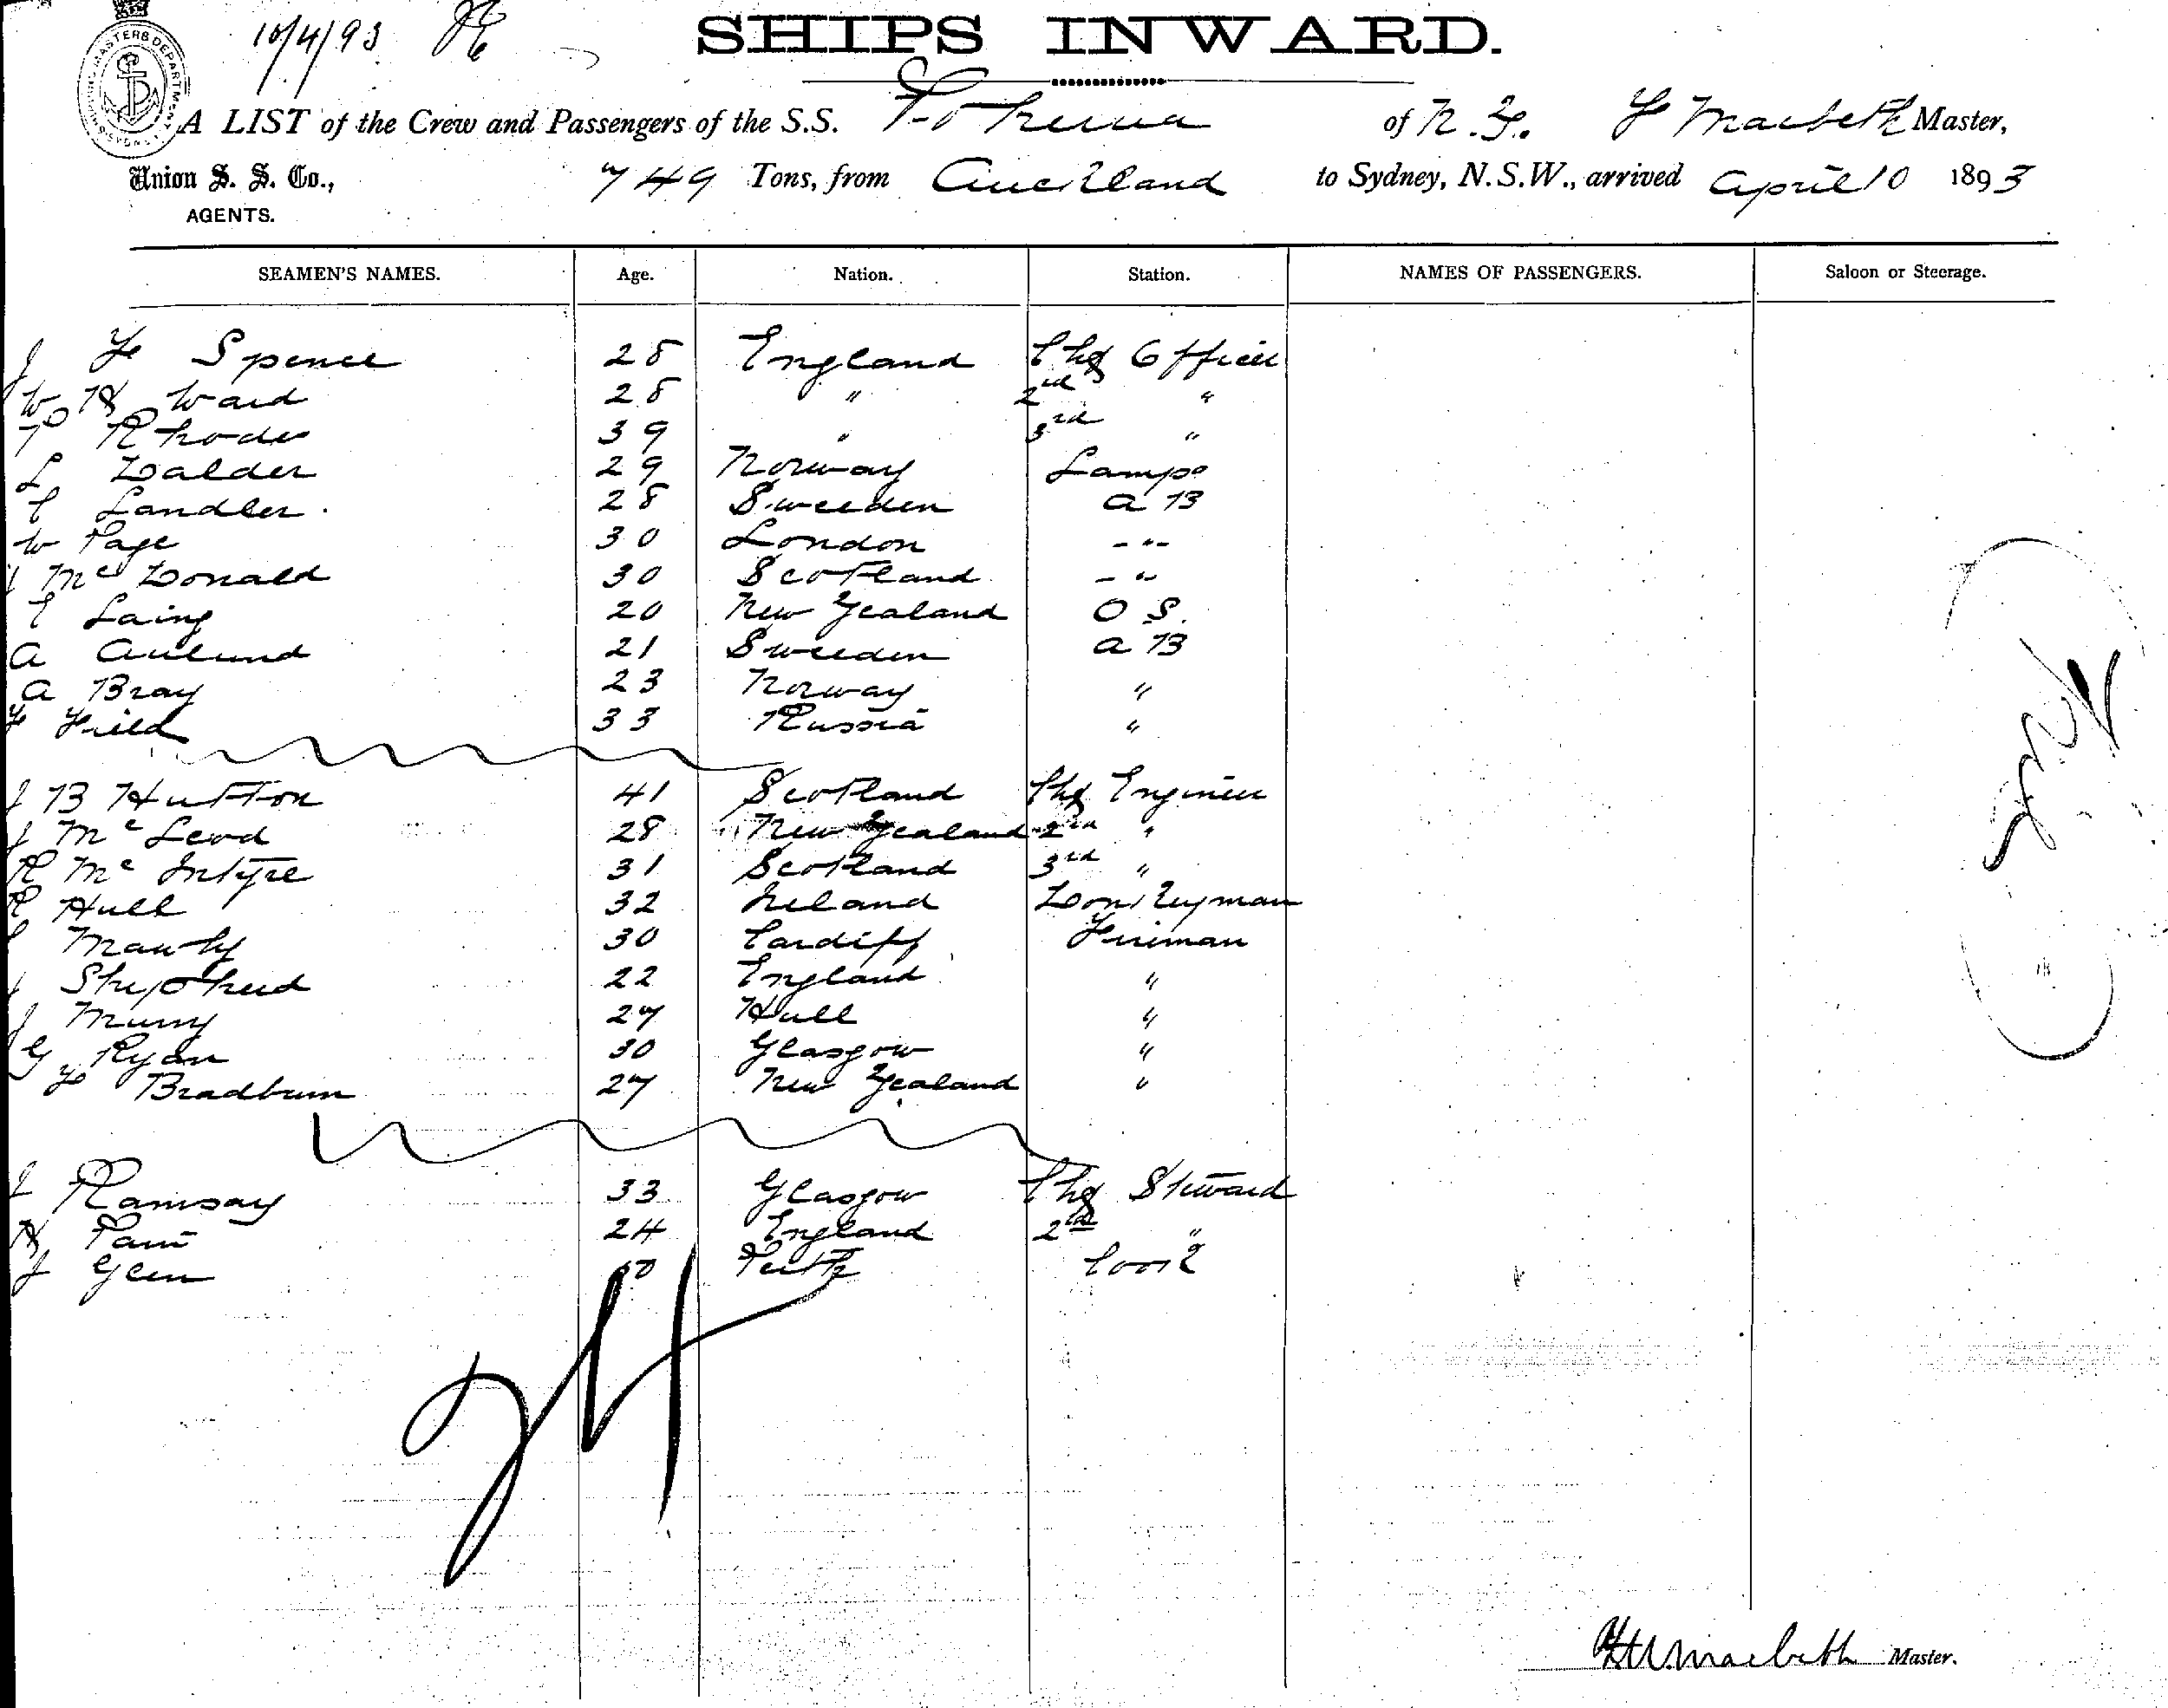 10/4/93
SHIPS INWARD.
A LIST of the Crew and Passengers of the S.S. Tekapo of N.Z. F Macbeth Master,
Union S. S. Co., 749 Tons, from Auckland to Sydney, N.S.W., arrived April 10 1893
AGENTS.
SEAMEN'S NAMES. Age. Nation. Station. NAMES OF PASSENGERS. Saloon or Steerage.
J F Spence 28 England Chf Officer
W H Ward 28 " 2nd "
T Rhodes 39 " 3rd "
L Dalder 29 Norway Lamps
C Sandler 28 Sweeden A B
W Page 30 London - " -
J Mc Donald 30 Scotland - "
E Laing 20 New Zealand O S.
A Aulund 21 Sweeden A B
A Bray 23 Norway "
F Field 33 Russia "
J B Hutton 41 Scotland Chf Engineer
J Mc Leod 28 New Zealand 2nd "
R Mc Intyre 31 Scotland 3rd "
R Hull 32 Ireland Donkeyman
Mawby 30 Cardiff Fireman
J Shepherd 22 England "
J Murry 27 Hull "
G Ryan 30 Glasgow "
F Bradburn 27 New Zealand "
J Ramsay 33 Glasgow Chf Steward
H Pain 24 England 2nd "
J Glen Perth Cook
Macbeth Master.